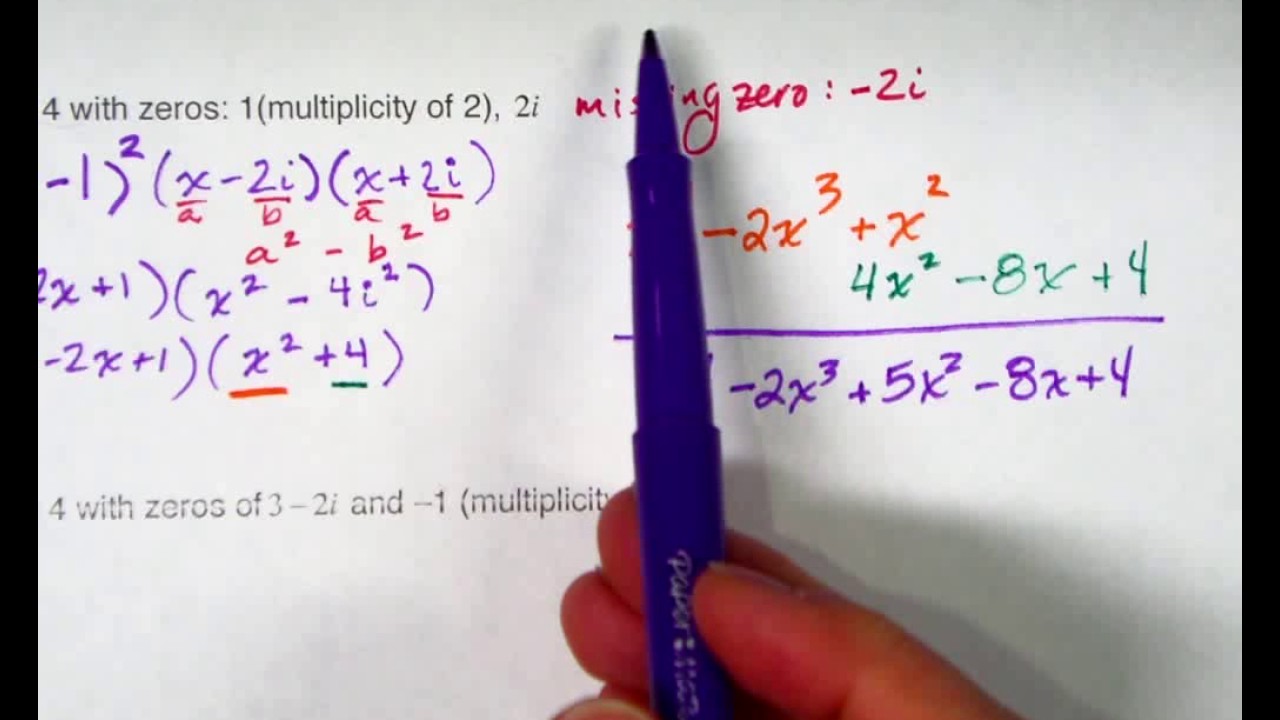 4 with zeros: 1(multiplicity of 2), 2i
missing zero: -2i
-1)²(x-2i)(x+2i)
a b a b
a² - b²
2x+1)(x² - 4i²)
-2x+1)(x²+4)
-2x³ + x²
4x² - 8x + 4
-2x³ + 5x² - 8x + 4
4 with zeros of 3 – 2i and –1 (multiplicit
paper: